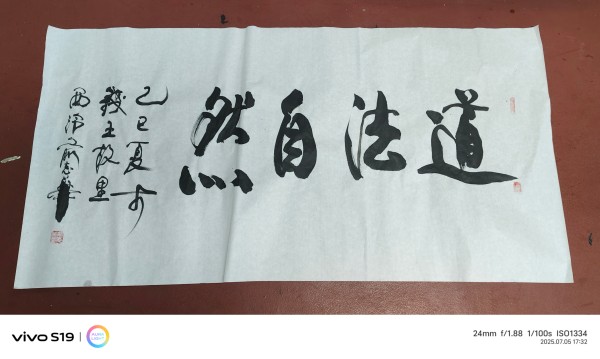 道法自然
乙巳夏于
錢王故里
vivo S19
AURA LIGHT
24mm f/1.88 1/100s ISO1334
2025.07.05 17:32